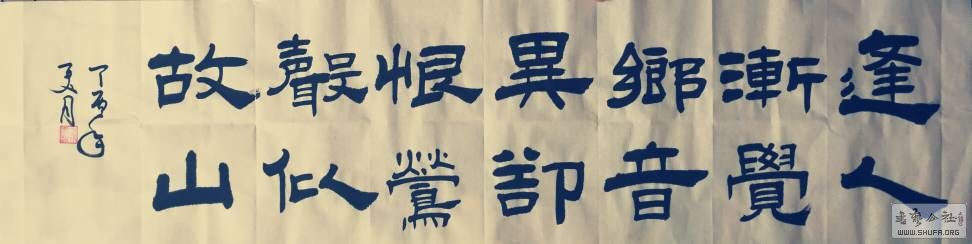 逢人
漸覺
鄉音
異卻
恨鶯
聲似
故山
丁酉年
夏月
WWW.SHUFA.ORG